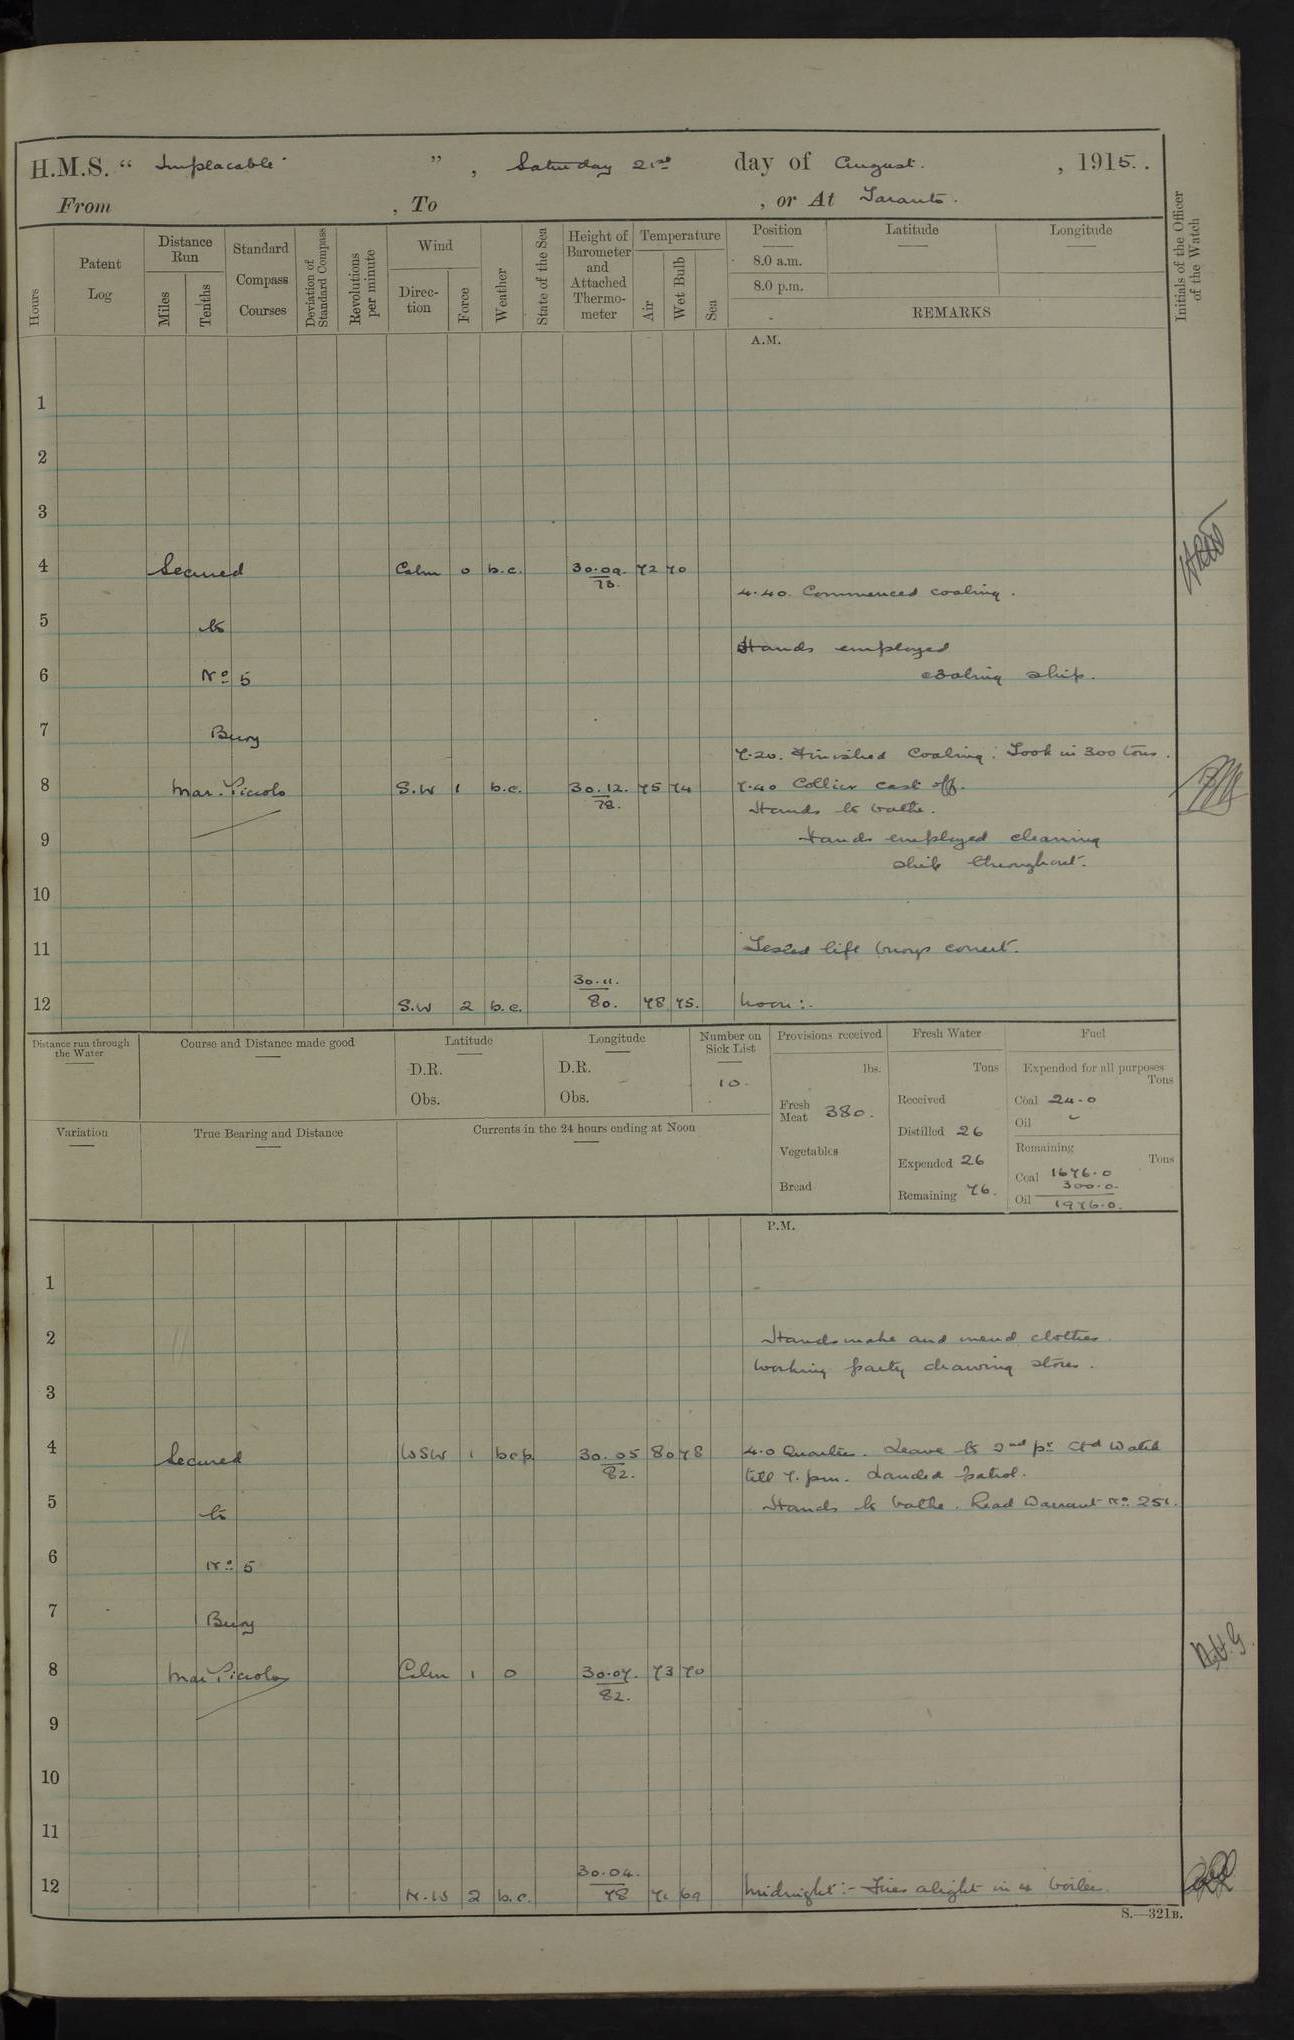 H.M.S. " Implacable ", Saturday 21st day of August. , 1915.
From , To , or At Taranto.
Hours
Patent Log
Distance Run
Miles
Tenths
Standard Compass Courses
Deviation of Standard Compass
Revolutions per minute
Wind
Direction
Force
Weather
State of the Sea
Height of Barometer and Attached Thermometer
Temperature
Air
Wet Bulb
Sea
Position
8.0 a.m.
8.0 p.m.
Latitude
Longitude
REMARKS
Initials of the Officer of the Watch
A.M.
1
2
3
4 Secured Calm 0 b.c. 30.09 73. 72 70
4.40. Commenced coaling.
5 to
Hands employed
6 No 5 coaling ship.
7 Buoy
7.20. Finished Coaling: Took in 300 tons.
8 Mar. Piccolo S.W 1 b.c. 30.12. 78. 75 74 7.40 Collier cast off.
Hands to bathe.
9 Hands employed cleaning
ship throughout.
10
11 Tested life buoys correct.
12 S.W 2 b.c. 30.11. 80. 78 75. Noon:-
Distance run through the Water
Course and Distance made good
Latitude
D.R.
Obs.
Longitude
D.R.
Obs.
Number on Sick List
10.
Provisions received
lbs.
Fresh Meat 380.
Vegetables
Bread
Fresh Water
Tons
Received
Distilled 26
Expended 26
Remaining 76.
Fuel
Expended for all purposes
Tons
Coal 24.0
Oil
Remaining
Tons
Coal 1676.0
300.0.
Oil 1976.0.
Variation
True Bearing and Distance
Currents in the 24 hours ending at Noon
P.M.
1
2 Hands make and mend clothes.
Working party drawing stores.
3
4 Secured WSW 1 bcp 30.05 82. 80 78 4.0 Quarters. Leave to 2nd pt Stbd Watch
till 7. pm. Landed patrol.
5 to Hands to bathe. Read Warrant No 251.
6 No 5
7 Buoy
8 Mar Piccolo Calm 1 0 30.07. 82. 73 70
9
10
11
12 N.W 2 b.c. 30.04. 78 71 69 Midnight:- Fires alight in 4 boilers.
S.—321B.